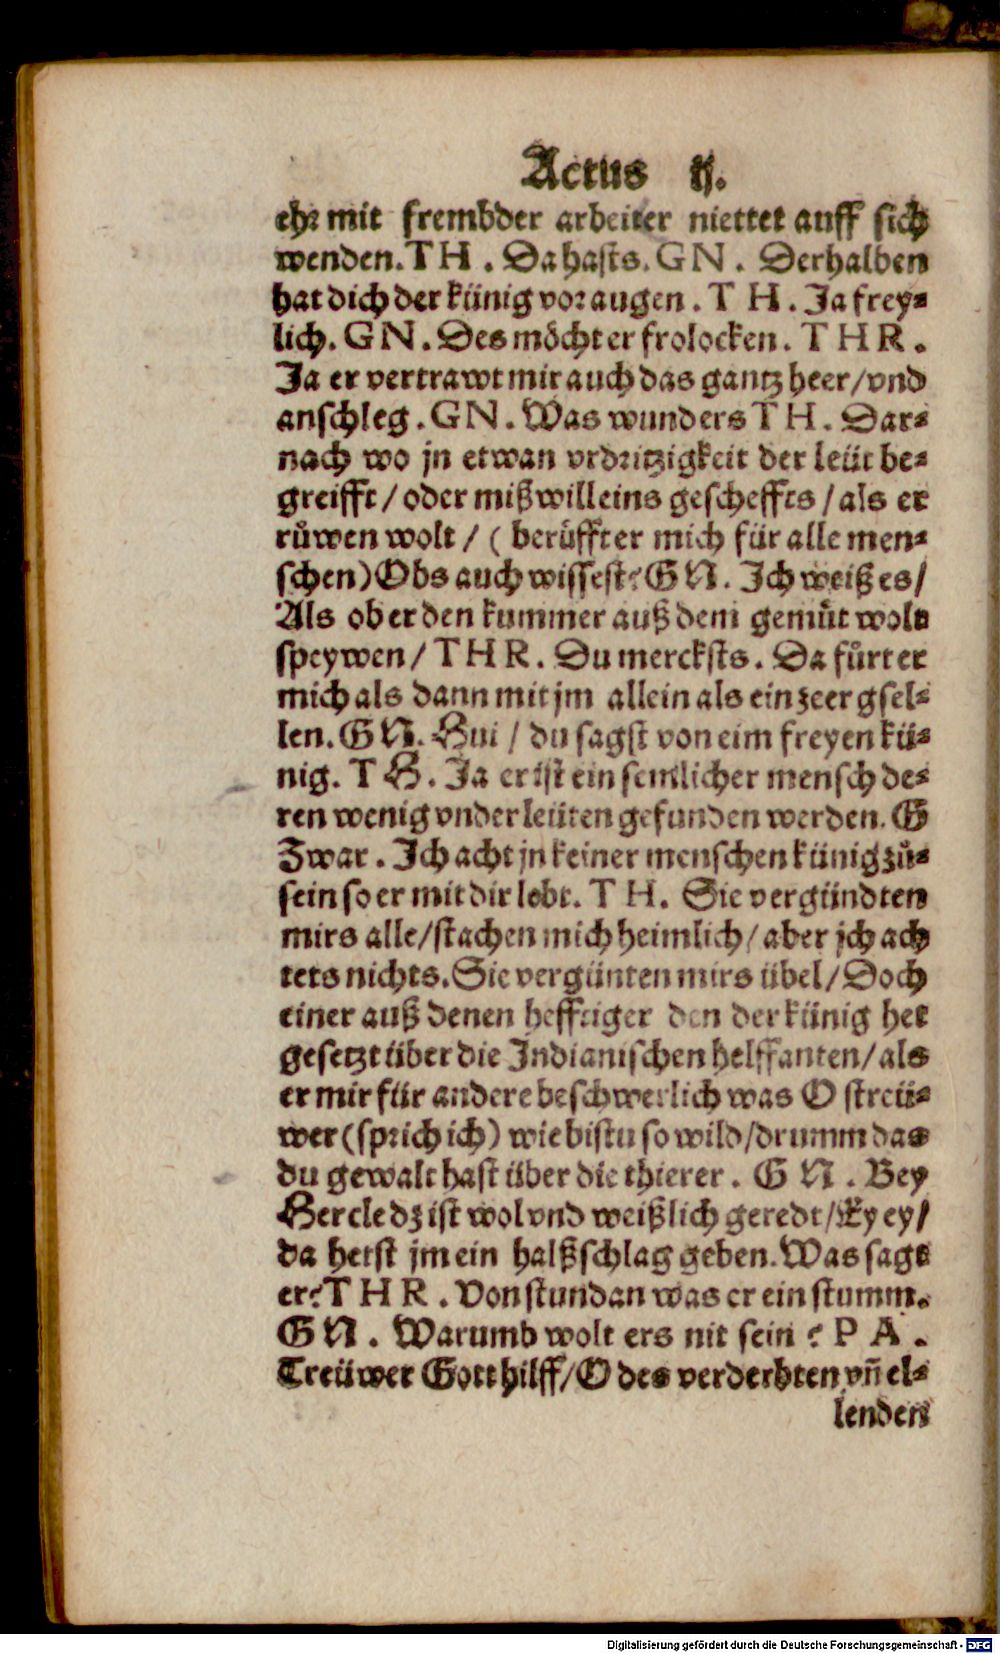 Actus ij.
ehr mit frembder arbeiter niettet auff sich
wenden. TH. Da hasts. GN. Derhalben
hat dich der künig vor augen. TH. Ja frey⸗
lich. GN. Des möcht er frolocken. THR.
Ja er vertrawt mir auch das gantz heer/vnd
anschleg. GN. Was wunders TH. Dar⸗
nach wo jn etwan vrdritzigkeit der leüt be⸗
greifft/oder mißwill eins gescheffts/als er
růwen wolt/(berüffter mich für alle men⸗
schen) Obs auch wissest? GN. Jch weiß es/
Als ob er den kummer auß dem gemüt wolt
speywen/THR. Du mercksts. Da fůrt er
mich als dann mit jm allein als ein zeer gsel⸗
len. GN. Hui/du sagst von eim freyen kü⸗
nig. TH. Ja er ist ein semlicher mensch de⸗
ren wenig vnder leüten gefunden werden. G
Zwar. Jch acht jn keiner menschen künig zů⸗
sein so er mit dir lebt. TH. Sie vergündten
mirs alle/stachen mich heimlich/aber jch ach
tets nichts. Sie vergünten mirs übel/Doch
einer auß denen hefftiger den der künig het
gesetzt über die Indianischen helffanten/als
er mir für andere beschwerlich was O streü⸗
wer (sprich ich) wie bistu so wild/drumm das
du gewalt hast über die thierer. GN. Bey
Hercle dz ist wol vnd weißlich geredt/Ey ey/
da hetst jm ein halßschlag geben. Was sagt
er? THR. Von stundan was er ein stumm.
GN. Warumb wolt ers nit sein? PA.
Treüwer Gott hilff/O des verderbten vñ el⸗
lenden
Digitalisierung gefördert durch die Deutsche Forschungsgemeinschaft - DFG